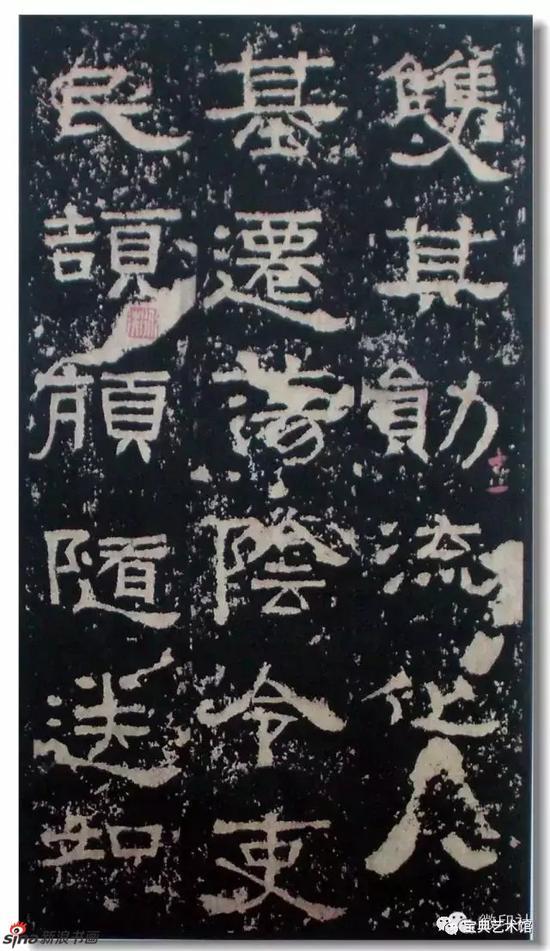 雙其勛流化八
基遷蕩陰令吏
民頡頏隨送如
sina新浪书画
宝典艺术馆